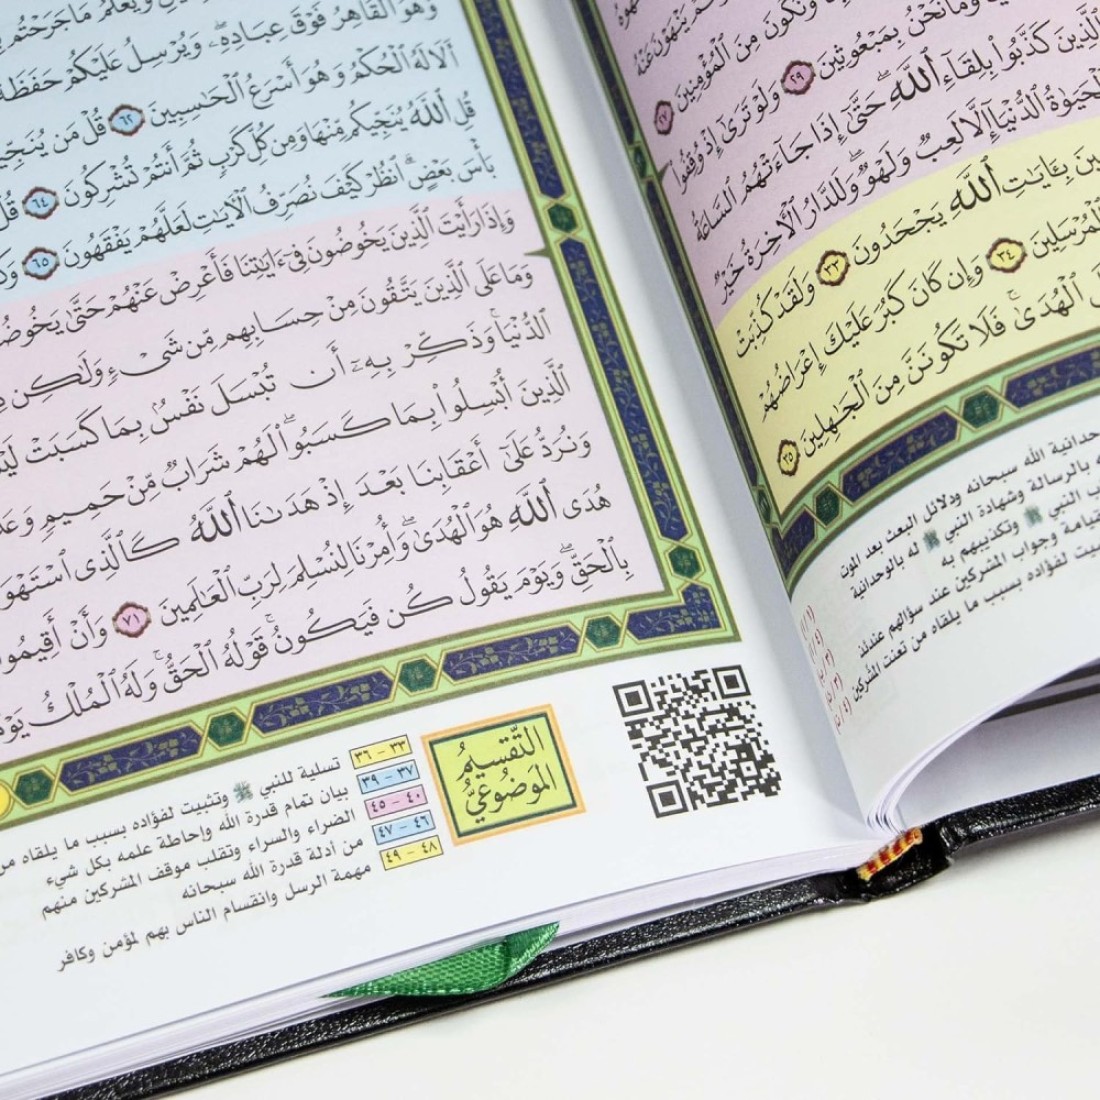 وَهُوَ ٱلْقَاهِرُ فَوْقَ عِبَادِهِۦ وَيُرْسِلُ عَلَيْكُمْ حَفَظَةً
أَلَا لَهُ ٱلْحُكْمُ وَهُوَ أَسْرَعُ ٱلْحَٰسِبِينَ ٦٢ قُلْ مَن يُنَجِّيكُم
قُلِ ٱللَّهُ يُنَجِّيكُم مِّنْهَا وَمِن كُلِّ كَرْبٍ ثُمَّ أَنتُمْ تُشْرِكُونَ ٦٤ قُلْ
بَأْسَ بَعْضٍ ۗ ٱنظُرْ كَيْفَ نُصَرِّفُ ٱلْءَايَٰتِ لَعَلَّهُمْ يَفْقَهُونَ ٦٥
وَإِذَا رَأَيْتَ ٱلَّذِينَ يَخُوضُونَ فِىٓ ءَايَٰتِنَا فَأَعْرِضْ عَنْهُمْ حَتَّىٰ
وَمَا عَلَى ٱلَّذِينَ يَتَّقُونَ مِنْ حِسَابِهِم مِّن شَىْءٍ وَلَٰكِن
ٱلدُّنْيَا ۚ وَذَكِّرْ بِهِۦٓ أَن تُبْسَلَ نَفْسٌۢ بِمَا كَسَبَتْ
ٱلَّذِينَ أُبْسِلُوا۟ بِمَا كَسَبُوا۟ ۖ لَهُمْ شَرَابٌ مِّنْ حَمِيمٍ
وَنُرَدُّ عَلَىٰٓ أَعْقَابِنَا بَعْدَ إِذْ هَدَىٰنَا ٱللَّهُ كَٱلَّذِى ٱسْتَهْوَ
هُدَى ٱللَّهِ هُوَ ٱلْهُدَىٰ ۖ وَأُمِرْنَا لِنُسْلِمَ لِرَبِّ ٱلْعَٰلَمِينَ ٧١ وَأَنْ أَقِيمُوا
بِٱلْحَقِّ ۖ وَيَوْمَ يَقُولُ كُن فَيَكُونُ ۚ قَوْلُهُ ٱلْحَقُّ ۚ وَلَهُ ٱلْمُلْكُ
التَّقْسِيمُ
المَوْضُوعِيُّ
٣٣ – ٣٦ تسلية للنبي ﷺ وتثبيت لفؤاده بسبب ما يلقاه من
٣٧ – ٣٩ بيان تمام قدرة الله وإحاطة علمه بكل شيء
٤٠ – ٤٥ الضراء والسراء وتقلب موقف المشركين منهم
٤٦ – ٤٧ من أدلة قدرة الله سبحانه
٤٨ – ٤٩ مهمة الرسل وانقسام الناس بهم لمؤمن وكافر
وَنَكُونَ مِنَ ٱلْمُؤْمِنِينَ ٢٧
وَمَا نَحْنُ بِمَبْعُوثِينَ ٢٩ وَلَوْ تَرَىٰٓ إِذْ وُقِفُوا۟
ٱلَّذِينَ كَذَّبُوا۟ بِلِقَآءِ ٱللَّهِ ۖ حَتَّىٰٓ إِذَا جَآءَتْهُمُ ٱلسَّاعَةُ
ٱلْحَيَوٰةُ ٱلدُّنْيَآ إِلَّا لَعِبٌ وَلَهْوٌ ۖ وَلَلدَّارُ ٱلْءَاخِرَةُ خَيْرٌ
بِـَٔايَٰتِ ٱللَّهِ يَجْحَدُونَ ٣٣ وَلَقَدْ كُذِّبَتْ
ٱلْمُرْسَلِينَ ٣٤ وَإِن كَانَ كَبُرَ عَلَيْكَ إِعْرَاضُهُمْ
ٱلْهُدَىٰ ۚ فَلَا تَكُونَنَّ مِنَ ٱلْجَٰهِلِينَ ٣٥
وحدانية الله سبحانه ودلائل البعث بعد الموت
بالرسالة وشهادة النبي ﷺ له بالوحدانية
النبي ﷺ وتكذيبهم به
وجواب المشركين عند سؤالهم عندئذ
لفؤاده بسبب ما يلقاه من تعنت المشركين